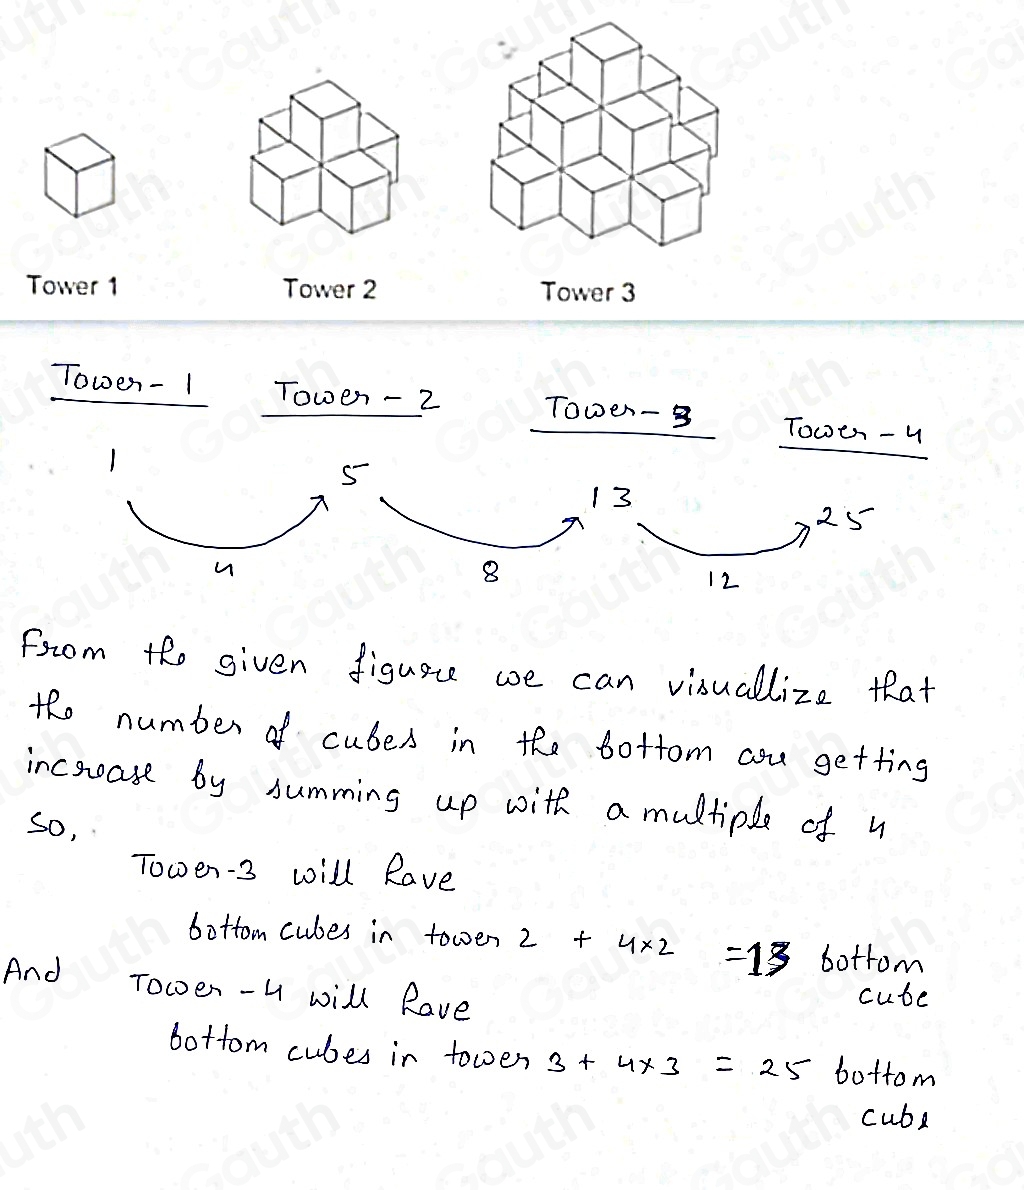 Tower 1 Tower 2 Tower 3
Tower - 1 Tower - 2 Tower - 3 Tower - 4
1 5 13 25
4 8 12
From the given figure we can visuallize that
the number of cubes in the bottom are getting
increase by summing up with a multiple of 4
So,
Tower-3 will have
bottom cubes in tower 2 + 4×2 = 13 bottom
cube
And Tower - 4 will have
bottom cubes in tower 3 + 4×3 = 25 bottom
cube
Gauth